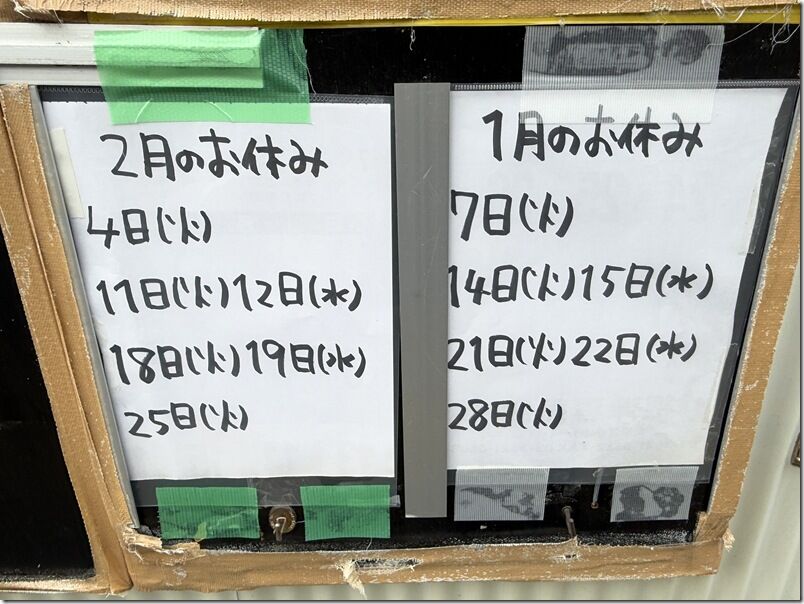 2月のお休み
4日(火)
11日(火)12日(水)
18日(火)19日(水)
25日(火)
1月のお休み
7日(火)
14日(火)15日(水)
21日(火)22日(水)
28日(火)